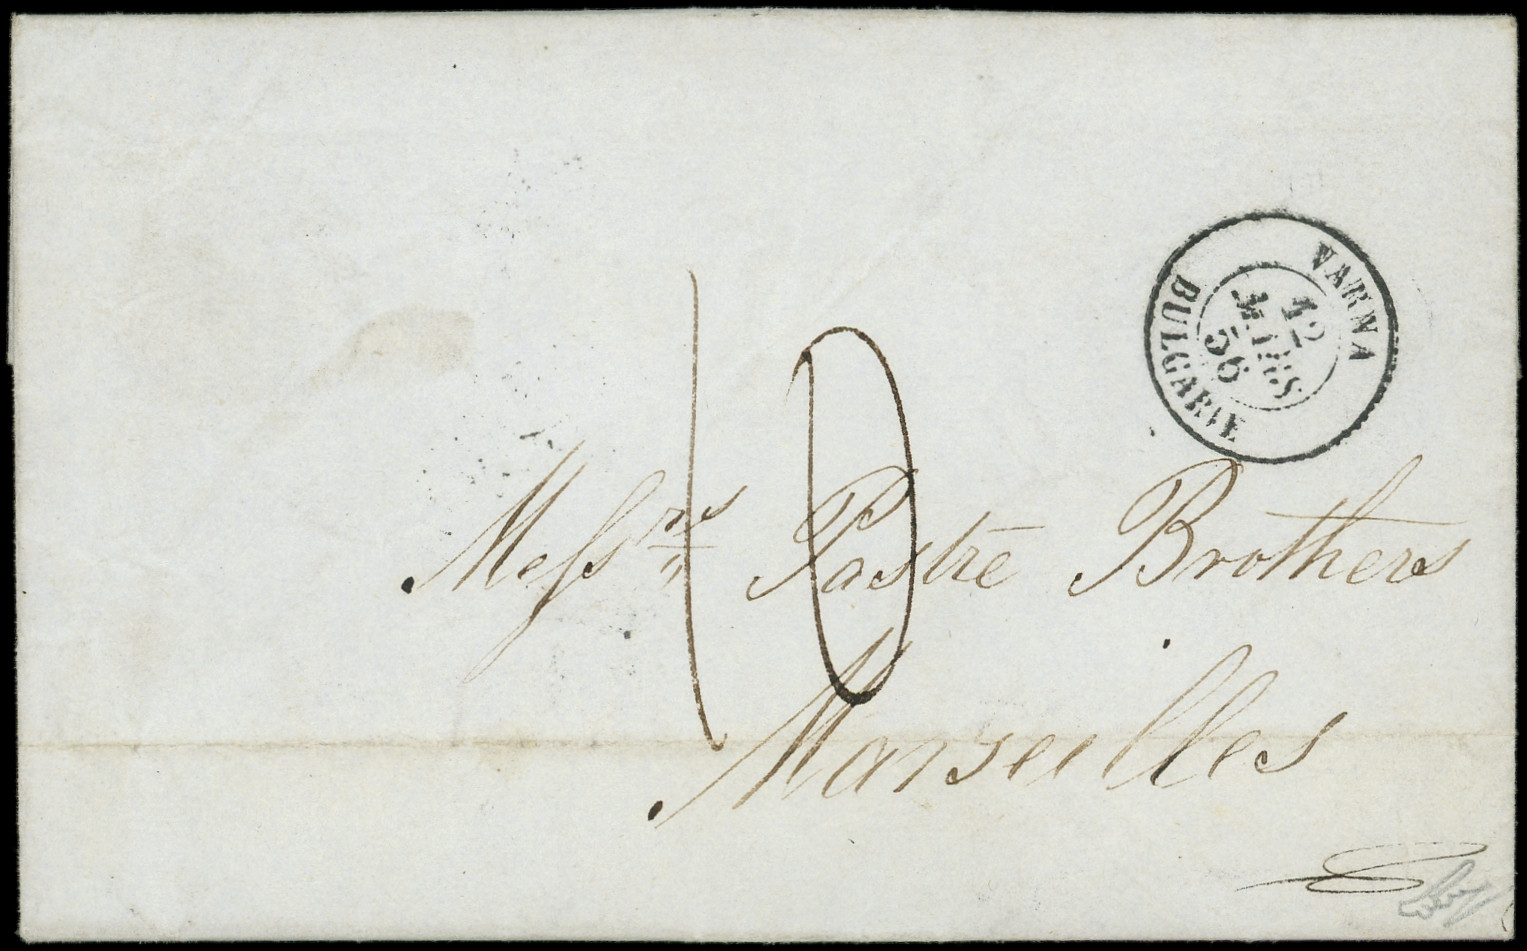 VARNA
12
MARS
56
BULGARIE
10
Messrs Pastré Brothers
Marseilles